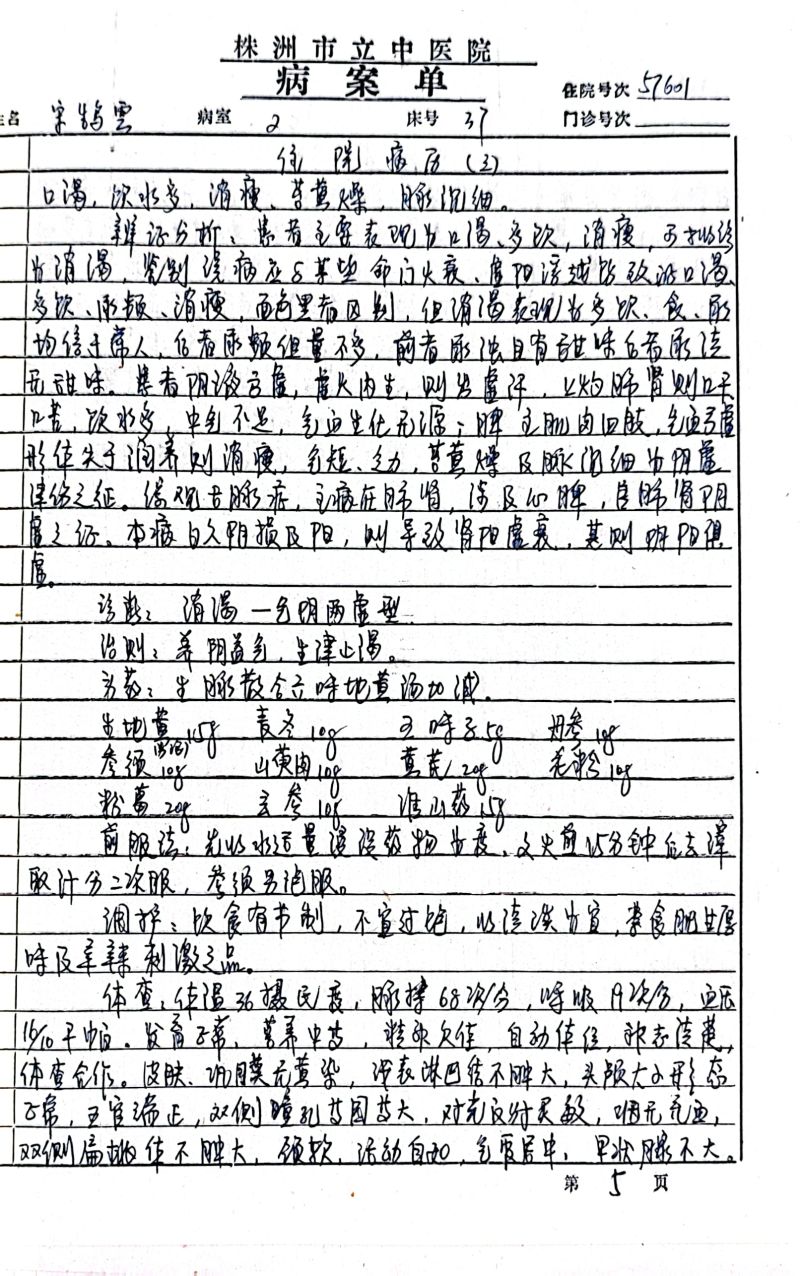 株洲市立中医院
病案单
住院号次 57601
姓名 宋鹄云 病室 2 床号 37 门诊号次
住院病历(3)
口渴,饮水多,消瘦,苔黄燥,脉沉细。
辨证分析:患者主要表现为口渴、多饮,消瘦,可拟诊
为消渴,鉴别该病应与某些命门火衰、虚阳浮越所致的口渴、
多饮、尿频、消瘦,面色黑者区别,但消渴表现为多饮、食、尿
均倍于常人,后者尿频但量不多,前者尿浊且有甜味后者尿清
无甜味。患者阴液亏虚,虚火内生,则出虚汗,上灼肺肾则口干
口苦,饮水多,中气不足,气血生化无源;脾主肌肉四肢,气血亏虚
形体失于润养则消瘦,气短、乏力,苔黄燥及脉沉细为阴虚
津伤之征。综观舌脉症,主病在肺肾,涉及心脾,呈肺肾阴
虚之证。本病日久阴损及阳,则导致肾阳虚衰,甚则阴阳俱
虚。
诊断:消渴—气阴两虚型
治则:养阴益气,生津止渴。
方药:生脉散合六味地黄汤加减。
生地黄15g 麦冬10g 五味子5g 丹参10g
参须(另泡)10g 山萸肉10g 黄芪20g 花粉10g
粉葛20g 玄参10g 淮山药15g
煎服法:先以水适量浸没药物为度,文火煎15分钟后去渣
取汁分二次服,参须另泡服。
调护:饮食有节制,不宜过饱,以清淡为宜,禁食肥甘厚
味及辛辣刺激之品。
体查:体温36摄氏度,脉搏68次/分,呼吸19次/分,血压
16/10千帕。发育正常,营养中等,精神欠佳,自动体位,神志清楚,
体查合作。皮肤、巩膜无黄染,浅表淋巴结不肿大,头颅大小形态
正常,五官端正,双侧瞳孔等园等大,对光反射灵敏,咽无充血,
双侧扁桃体不肿大,颈软,活动自如,气管居中,甲状腺不大。
第 5 页